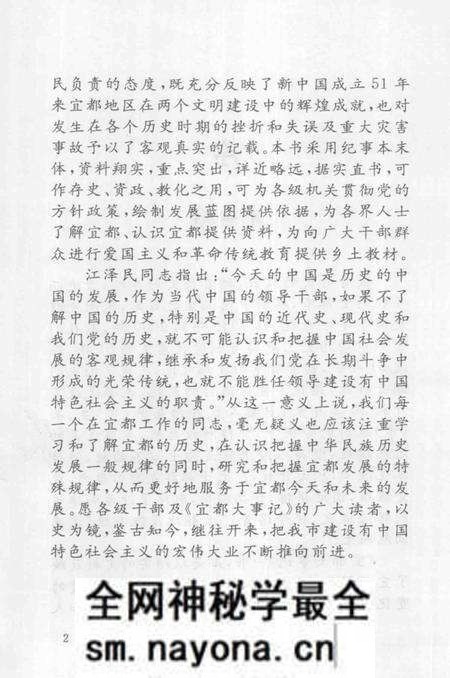 民负责的态度，既充分反映了新中国成立51年
来宜都地区在两个文明建设中的辉煌成就，也对
发生在各个历史时期的挫折和失误及重大灾害
事故予以了客观真实的记载。本书采用纪事本末
体，资料翔实，重点突出，详近略远，据实直书，可
作存史、资政、教化之用，可为各级机关贯彻党的
方针政策，绘制发展蓝图提供依据，为各界人士
了解宜都、认识宜都提供资料，为向广大干部群
众进行爱国主义和革命传统教育提供乡土教材。
江泽民同志指出：“今天的中国是历史的中
国的发展，作为当代中国的领导干部，如果不了
解中国的历史，特别是中国的近代史、现代史和
我们党的历史，就不可能认识和把握中国社会发
展的客观规律，继承和发扬我们党在长期斗争中
形成的光荣传统，也就不能胜任领导建设有中国
特色社会主义的职责。”从这一意义上说，我们每
一个在宜都工作的同志，毫无疑义也应该注重学
习和了解宜都的历史，在认识把握中华民族历史
发展一般规律的同时，研究和把握宜都发展的特
殊规律，从而更好地服务于宜都今天和未来的发
展。愿各级干部及《宜都大事记》的广大读者，以
史为镜，鉴古知今，继往开来，把我市建设有中国
特色社会主义的宏伟大业不断推向前进。
2
全网神秘学最全
sm.nayona.cn